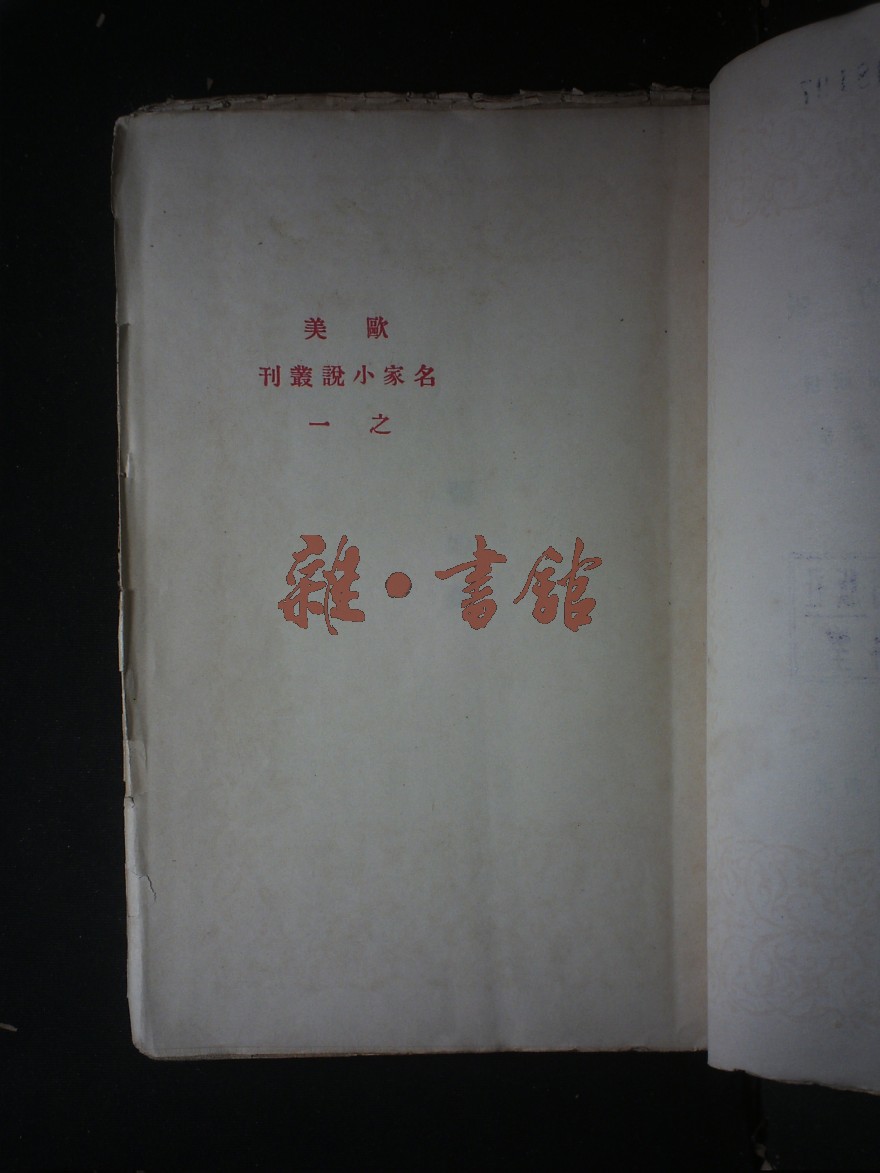 歐美
名家小說叢刊
之一
雜·書館